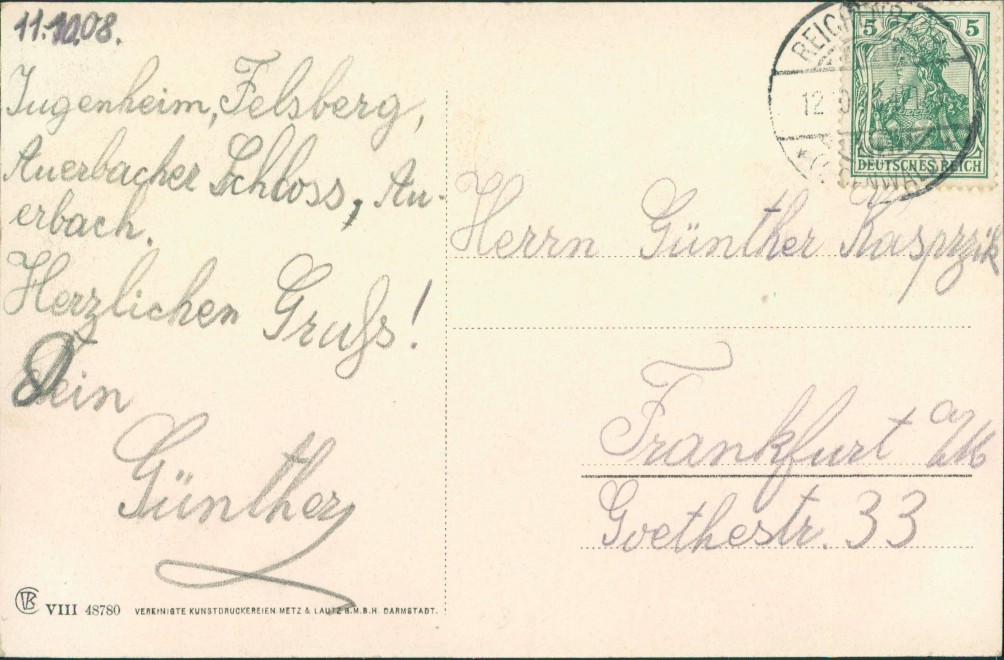 11.10.08.
Jugenheim, Felsberg,
Auerbacher Schloss, Au-
erbach.
Herzlichen Gruß!
Dein
Günther
VIII 48780 VEREINIGTE KUNSTDRUCKEREIEN METZ & LAUTZ G.M.B.H. DARMSTADT.
5 5
DEUTSCHES REICH
12
Herrn Günther Kasprzik
Frankfurt a/M
Goethestr. 33